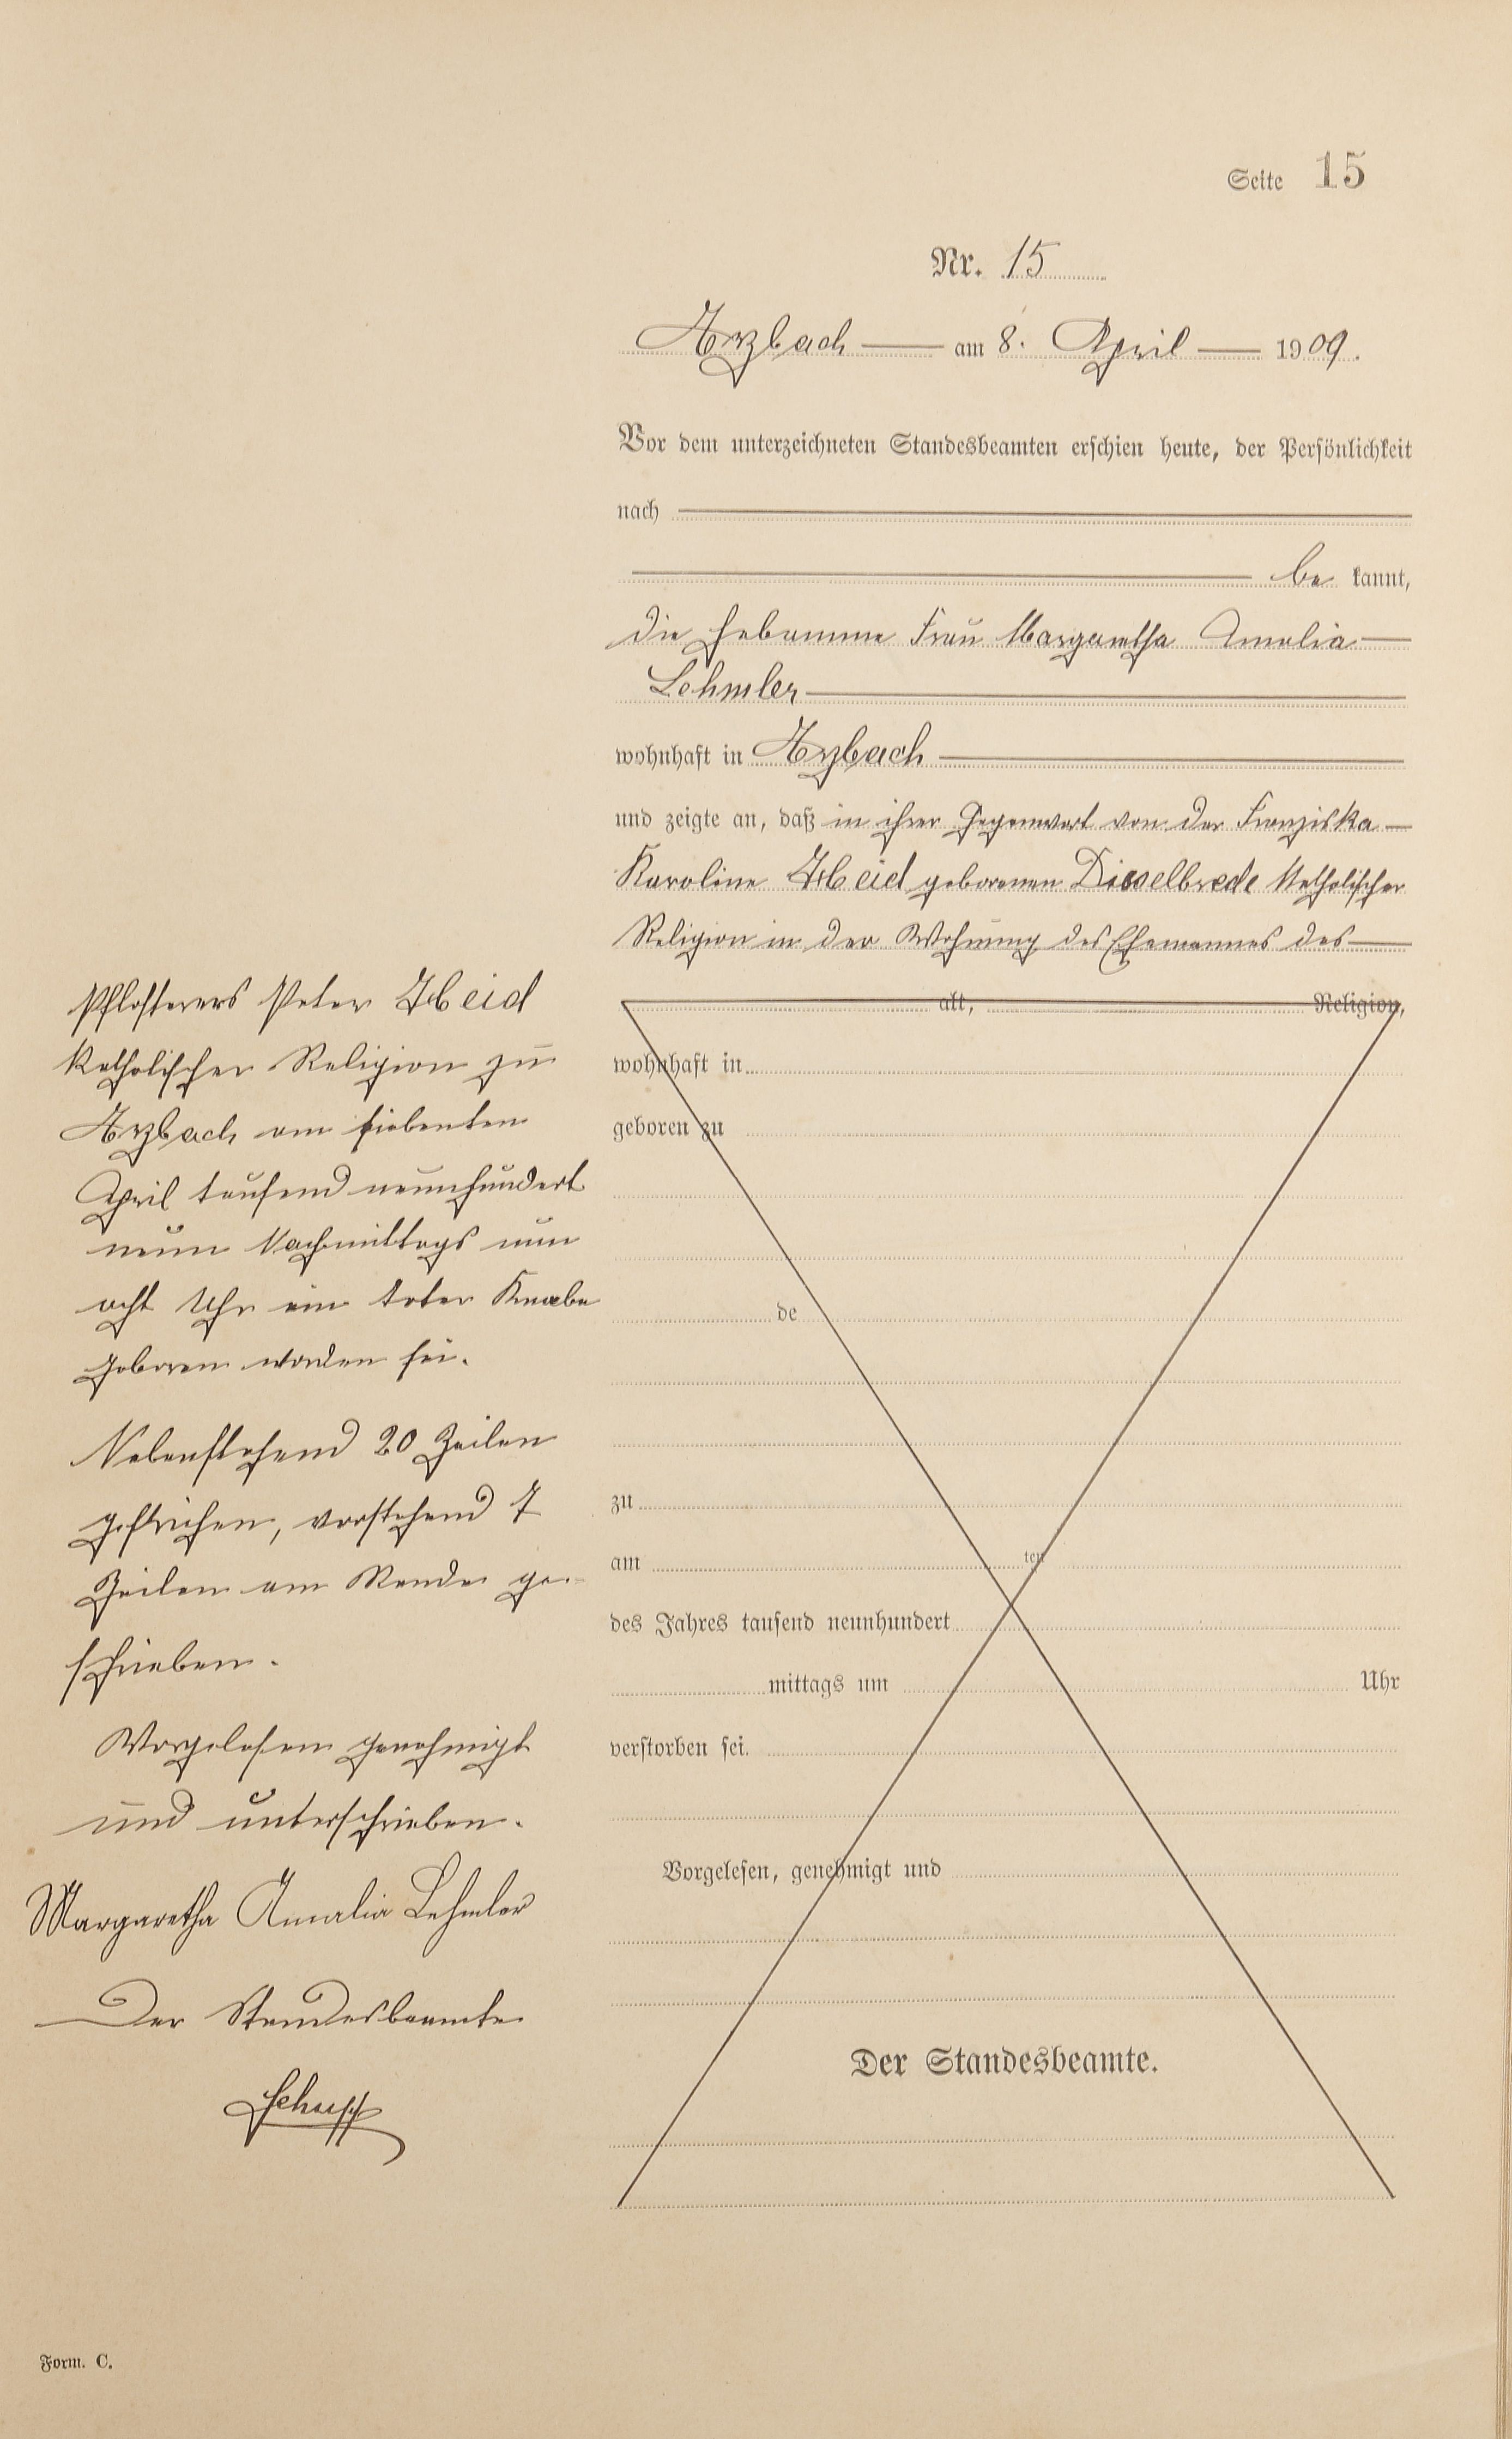 Seite 15
Nr. 15
Arzbach am 8. April 1909.
Vor dem unterzeichneten Standesbeamten erschien heute, der Persönlichkeit
nach
be kannt,
die Hebamme Frau Margaretha Amalia
Lehmler
wohnhaft in Arzbach
und zeigte an, daß in ihrer Gegenwart von der Franziska
Karoline Heid geborenen Disselbrede katholischer
Religion in der Wohnung des Ehemannes des
Pflasterers Peter Heid
katholischer Religion zu
Arzbach am siebenten
April tausend neunhundert
neun Nachmittags um
acht Uhr ein toter Knabe
geboren worden sei.
Nebenstehend 20 Zeilen
gestrichen, vorstehend 7
Zeilen am Rande ge-
schrieben.
Vorgelesen genehmigt
und unterschrieben.
Margaretha Amalia Lehmler
Der Standesbeamte
Schupp
alt, Religion,
wohnhaft in
geboren zu
de
zu
am ten
des Jahres tausend neunhundert
mittags um Uhr
verstorben sei.
Vorgelesen, genehmigt und
Der Standesbeamte.
Form. C.